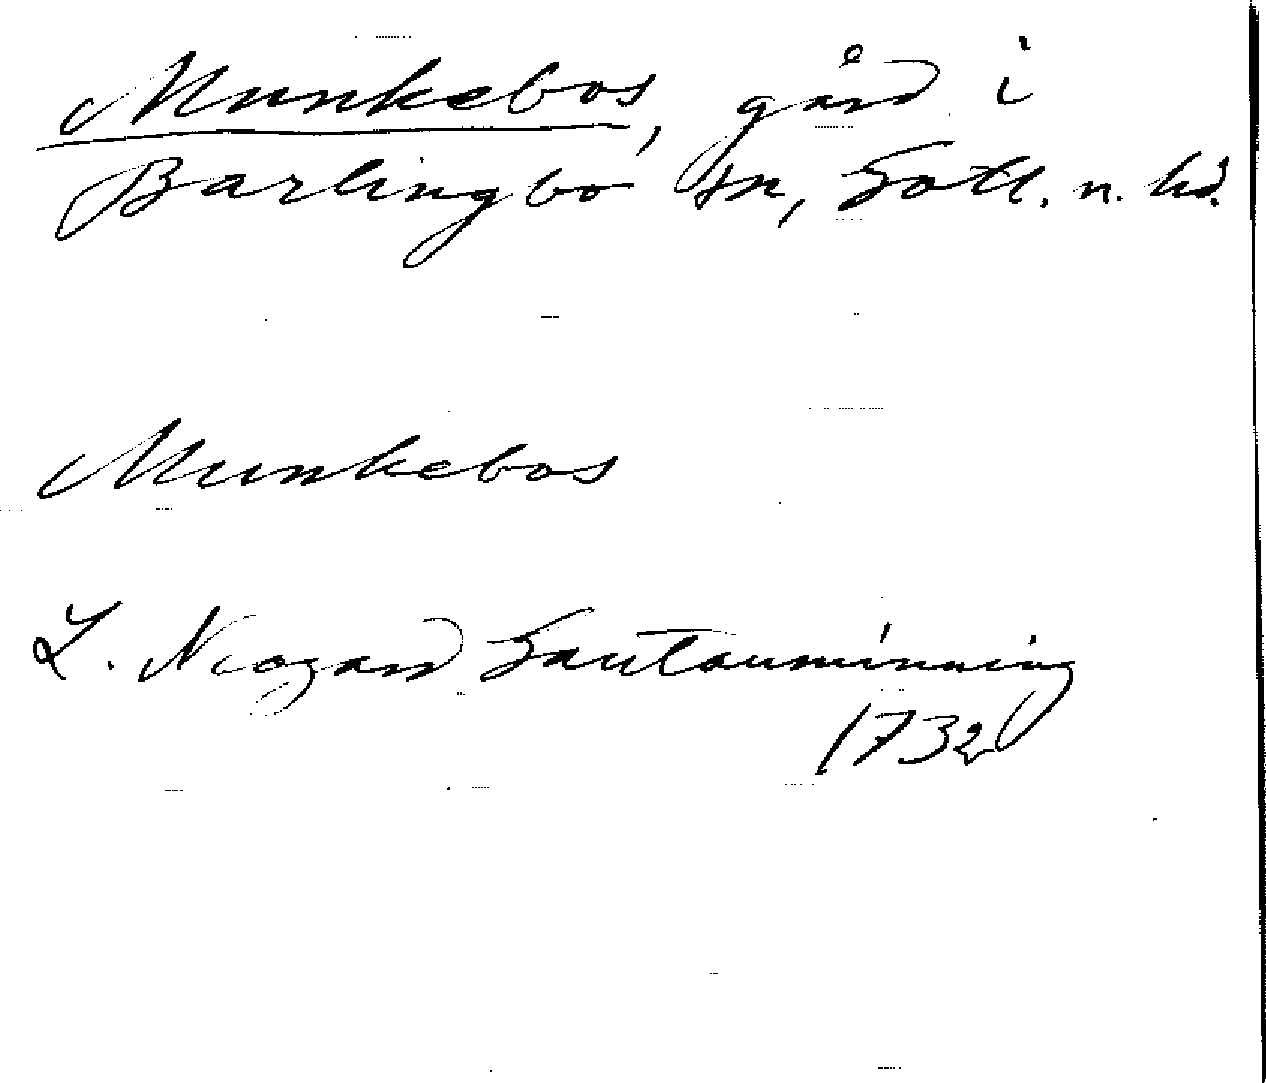 Munkebos, gård i
Barlingbo sn, Gotl. n. hd.
Munkebos
L. Neogard Gautauminning
1732